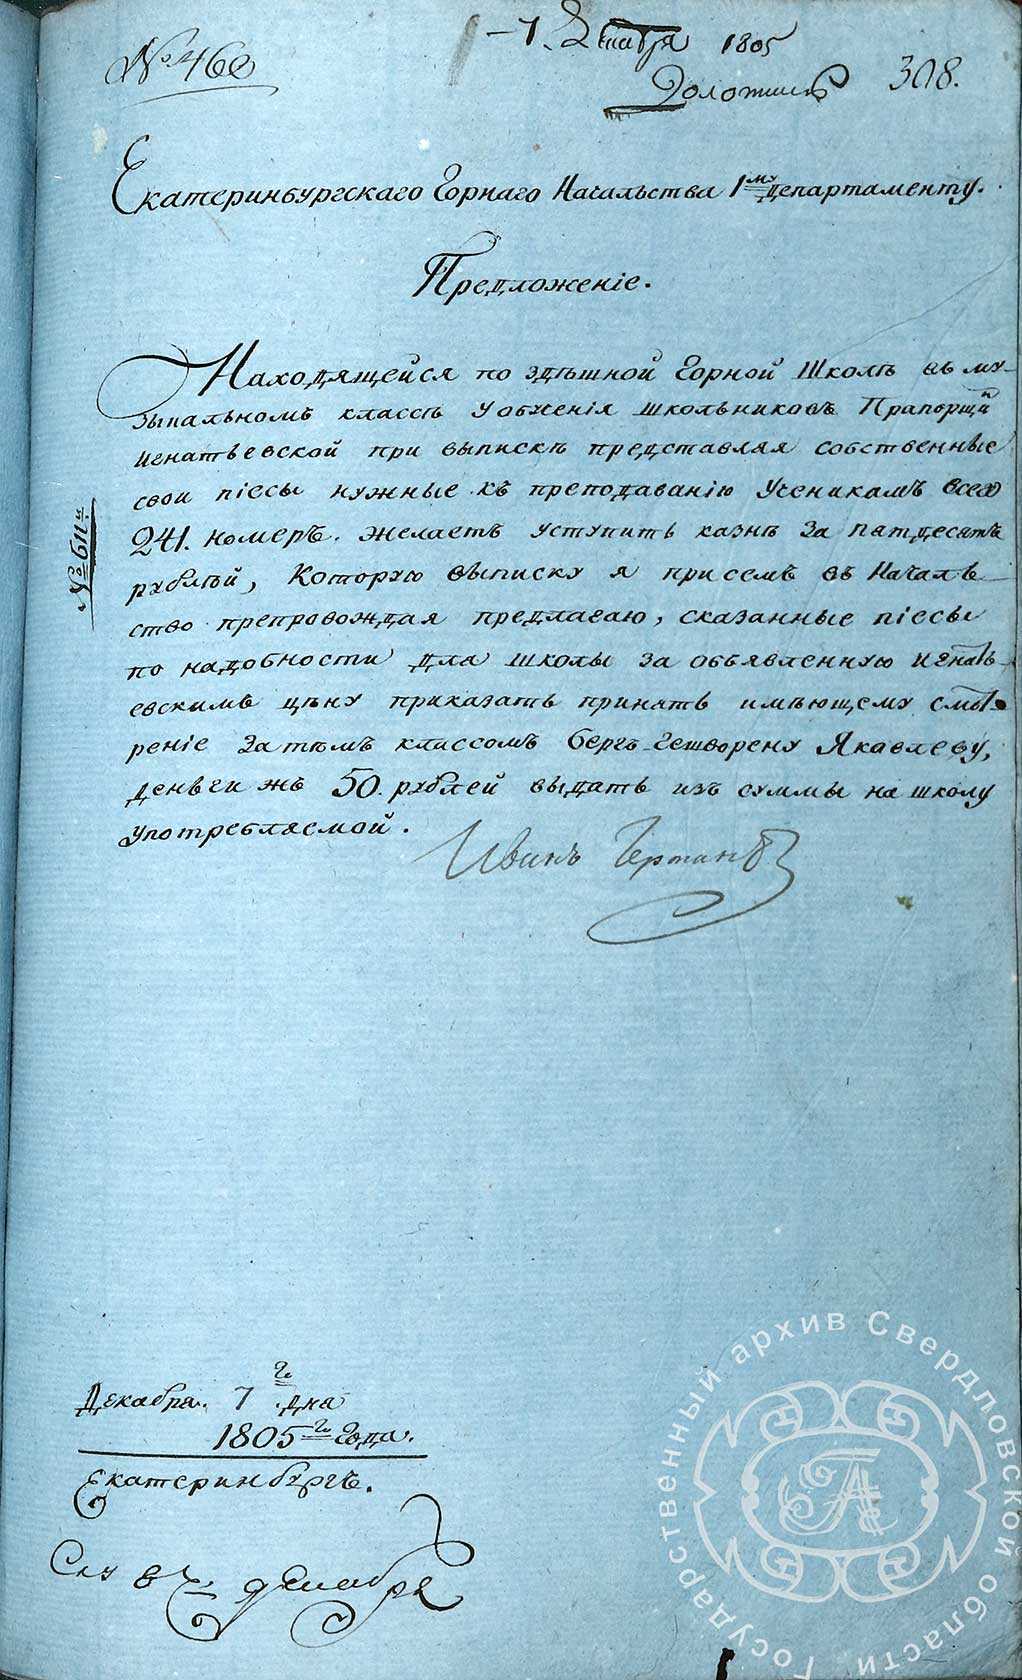 № 460
7. Декабря 1805
Доложить
308.
Екатеринбургскаго Горнаго Начальства 1му Департаменту.
Предложеніе.
Находящейся по здѣшной Горной Школѣ въ му-
зыкальномъ классѣ у обученія школьниковъ Прапорщикъ
Игнатьевской при выпискѣ представляя собственные
свои піесы нужные къ преподаванію Ученикамъ всего
241. номеръ. желаетъ уступить казнѣ за пятдесятъ
рублѣй, Которую выписку я присемъ въ Началь
ство препровождая предлагаю, сказанные піесы
по надобности для школы за объявленную Игнать-
евскимъ цѣну приказать принять имѣющему смот-
реніе за тѣмъ классомъ бергъ-гешворену Яковлеву,
деньги жъ 50. рублей выдать изъ суммы на школу
употребляемой.
Иванъ Германъ
Декабря. 7го дня
1805го года.
Екатеринбургъ.
декабря
Государственный архив Свердловской области
ГА